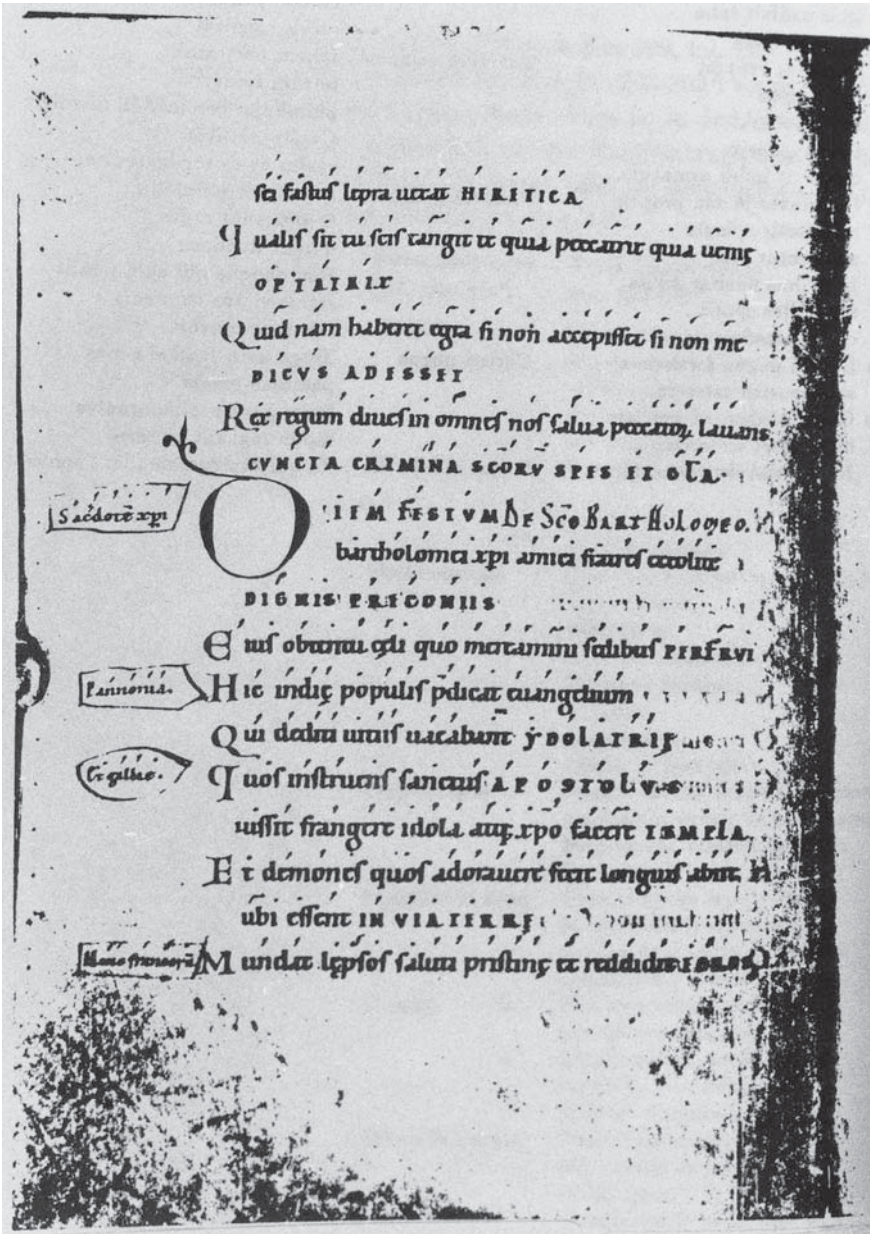 sci fastus lepra uexat HERETICA
Qualis sit tu scis tangit te quia peccatrix quia uenię
OPTATRIX
Quid nam haberet egra si non accepisset si non me
DICVS ADESSET
Rex regum diues in omnes nos salua peccatoꝝ lauans
CVNCTA CRIMINA SCORV SPES ET GLA.
Sacdote xpi
OIEM FESTVM DE SCO BARTHOLOMEO.
bartholomei xpi amici fratres excolite
DIGNIS PRECONIIS
Eius obtentu cęli quo mereamini sedibus PERFRVI
Pannonia. Hic indię populis p̄dicat euangelium
Qui dediti uitiis uacabant yDOLATRIĘ
Quos instruens sanctus APOSTOLVS
iussit frangere idola atq; xpo facere TEMPLA
Et demones quos adorauere fecit longius abire
ubi essent IN VIA TERRĘ
Mundat lęprosos saluti pristinę et reddidit